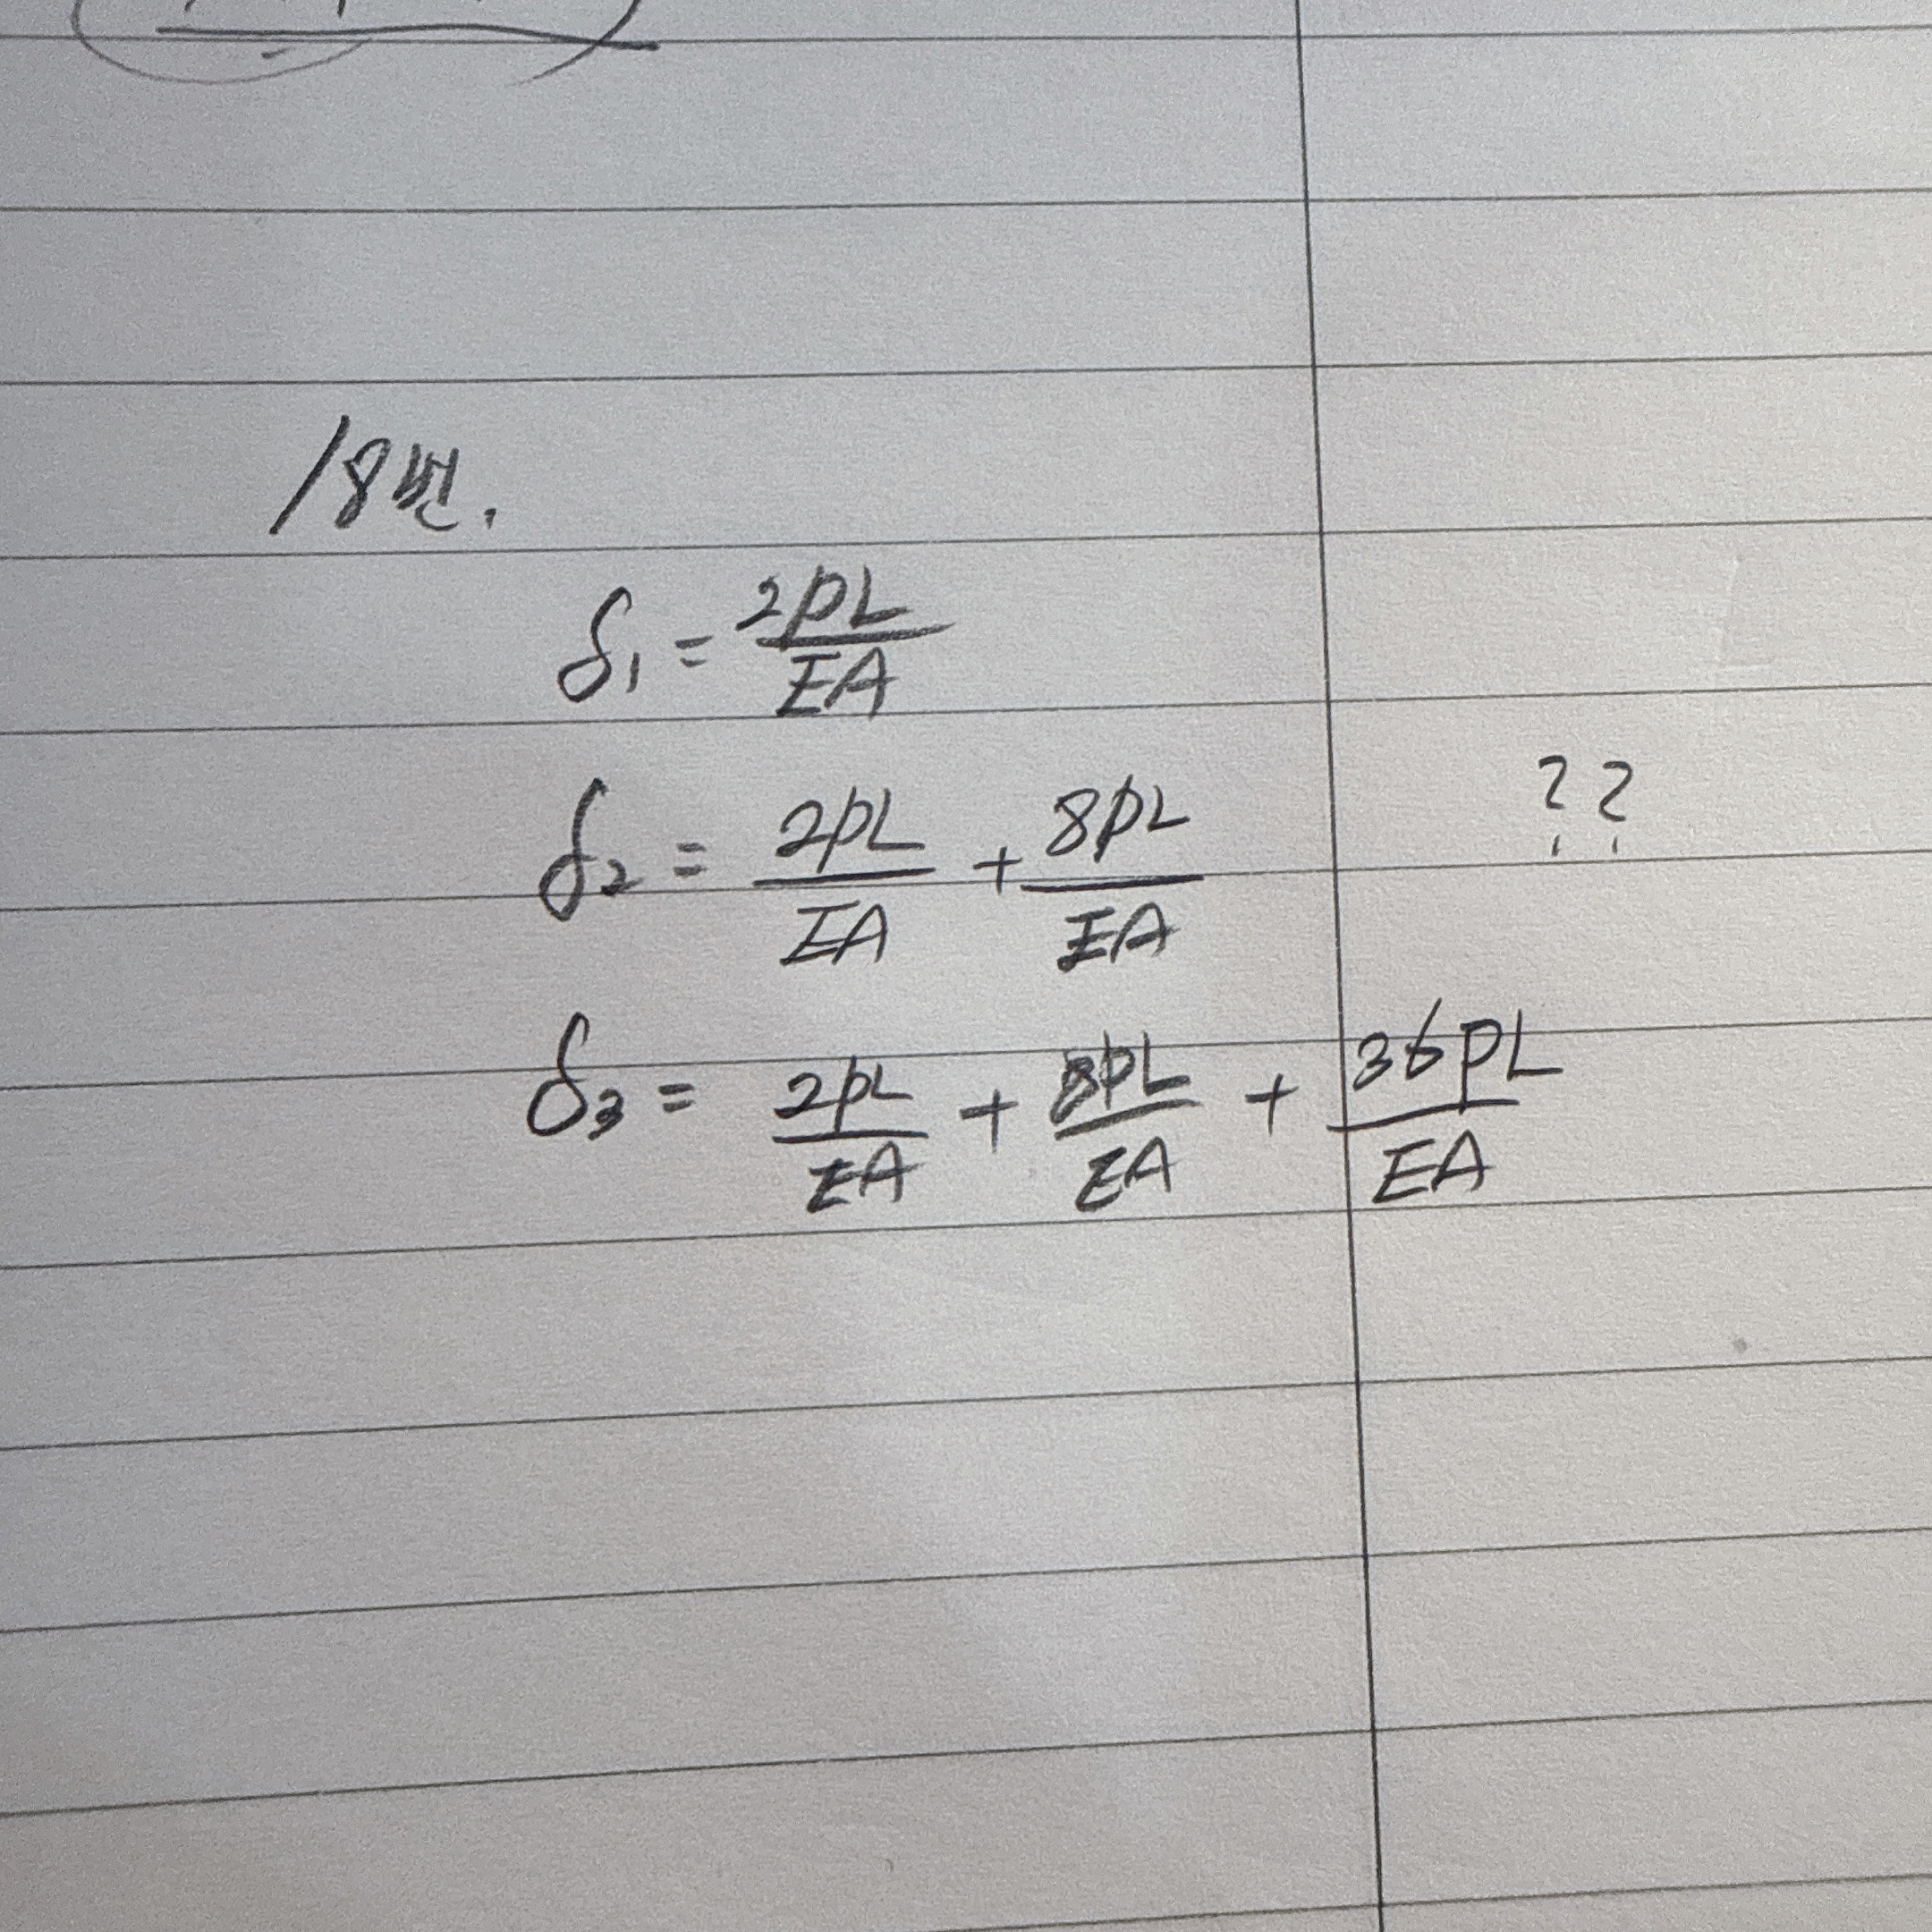 18번.
δ₁ = 2PL/EA
δ₂ = 2PL/EA + 8PL/EA ??
δ₃ = 2PL/EA + 8PL/EA + 36PL/EA